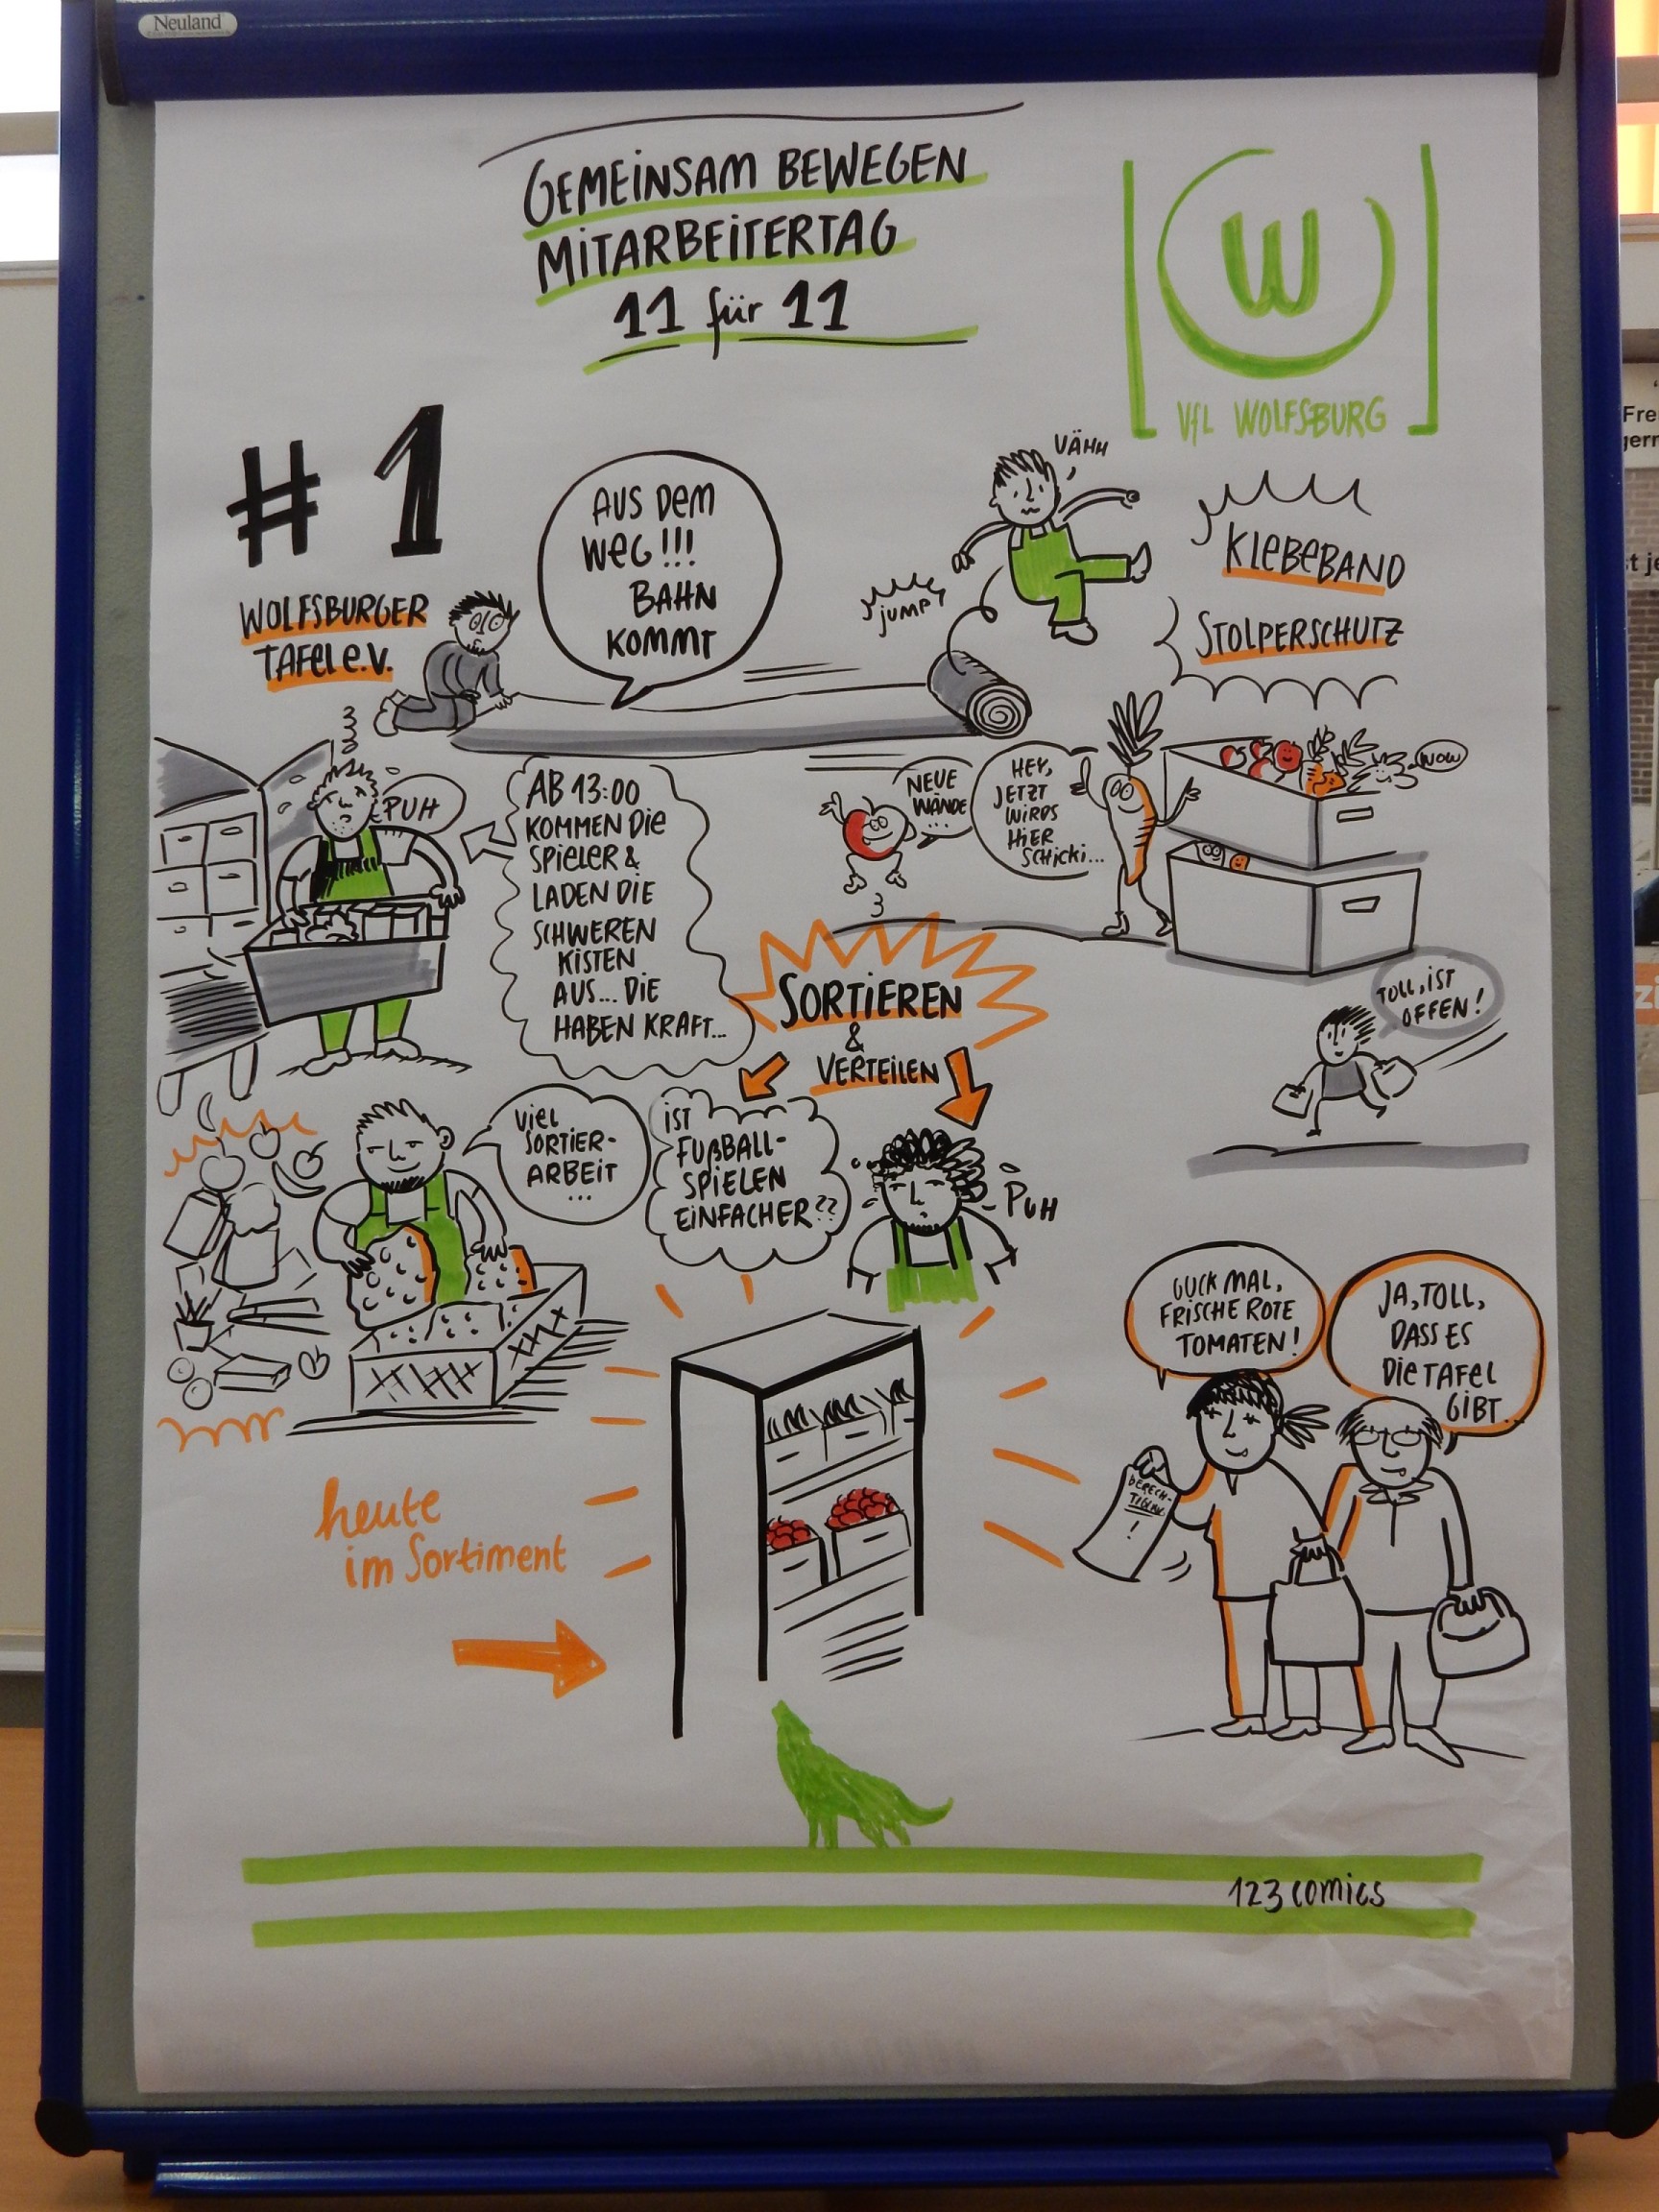 Neuland
GEMEINSAM BEWEGEN
MITARBEITERTAG
11 für 11
W
VfL WOLFSBURG
# 1
WOLFSBURGER
TAFEL e.V.
AUS DEM
WEG!!!
BAHN
KOMMT
VÄHH
JUMP
KLEBEBAND
STOLPERSCHUTZ
PUH
AB 13:00
KOMMEN DIE
SPIELER &
LADEN DIE
SCHWEREN
KISTEN
AUS... DIE
HABEN KRAFT...
NEUE
WÄNDE
...
HEY,
JETZT
WIRDS
HIER
SCHICKI...
WOW
SORTIEREN
&
VERTEILEN
TOLL, IST
OFFEN!
VIEL
SORTIER-
ARBEIT
...
IST
FUßBALL-
SPIELEN
EINFACHER??
PUH
GUCK MAL,
FRISCHE ROTE
TOMATEN!
JA, TOLL,
DASS ES
DIE TAFEL
GIBT...
BERECH-
!
heute
im Sortiment
123comics